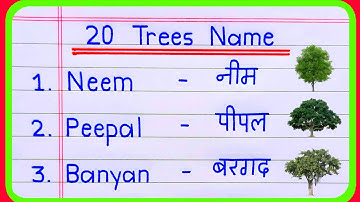 20 Trees Name
1. Neem - नीम
2. Peepal - पीपल
3. Banyan - बरगद